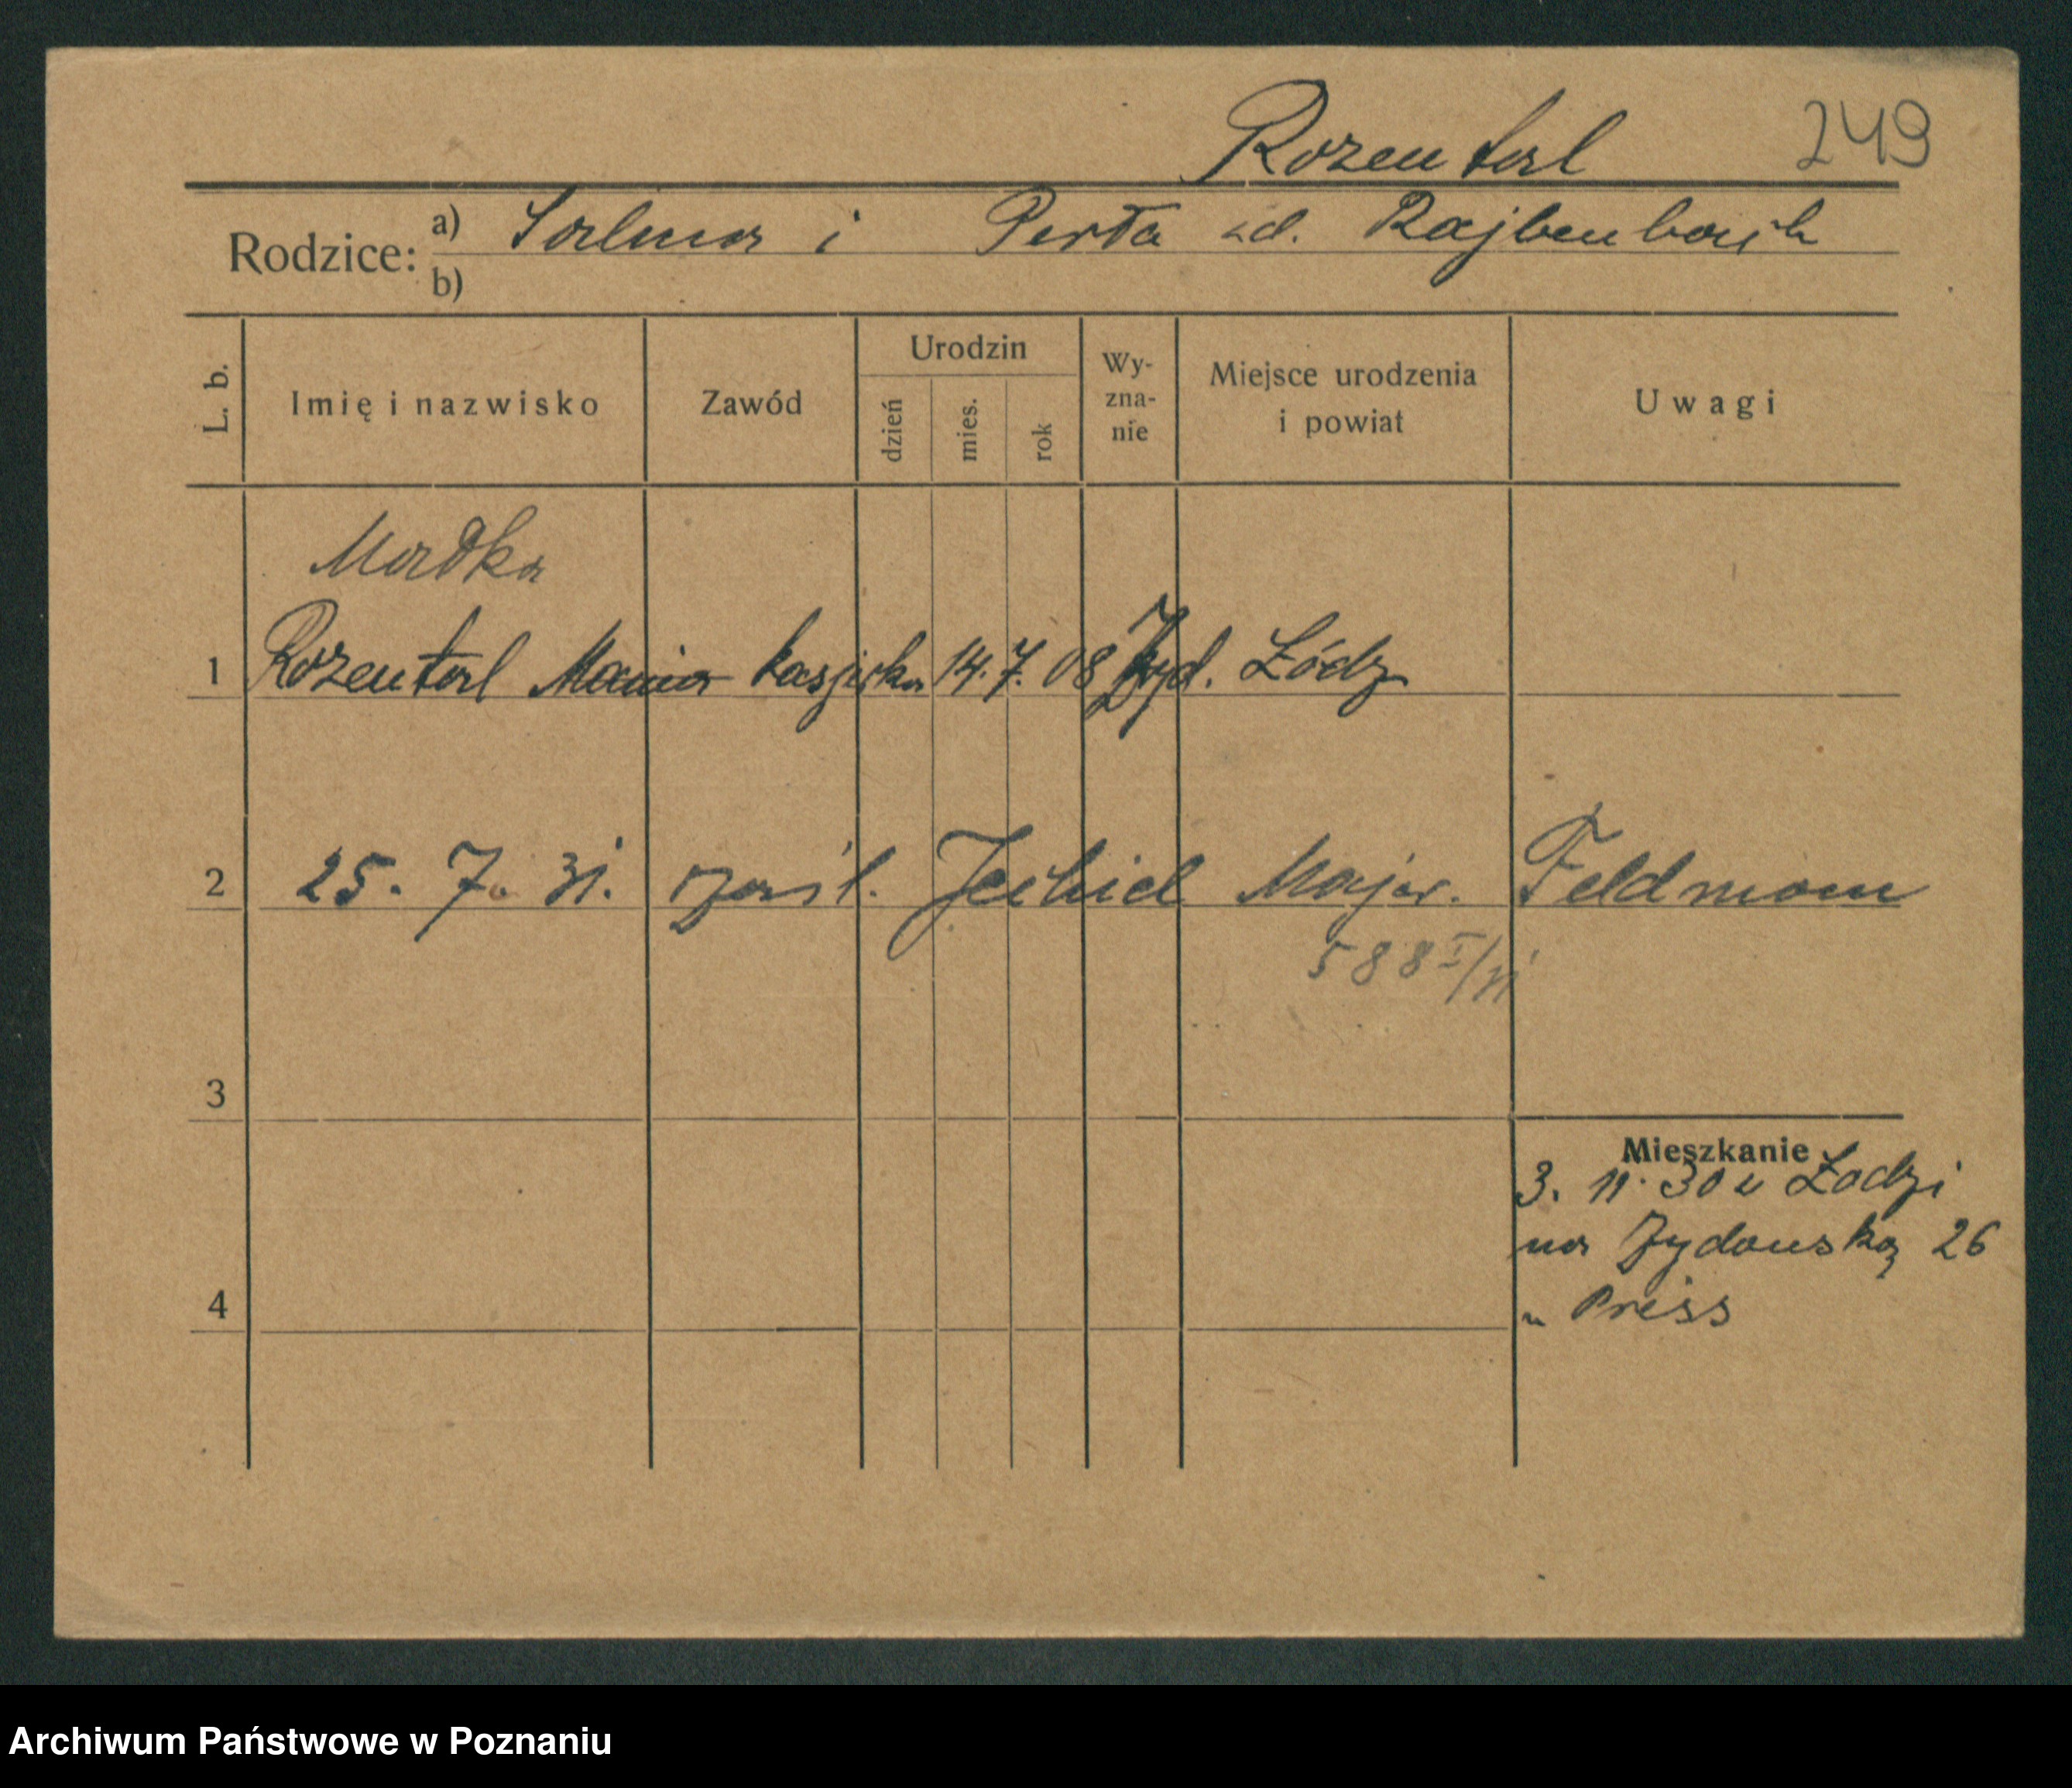 Rozental 249
Rodzice: a) Salma i Perła zd. Rajbenbach
b)
L. b. Imię i nazwisko Zawód Urodzin dzień mies. rok Wy-zna-nie Miejsce urodzenia i powiat Uwagi
Madka
1 Rozental Mania kasjerka 14. 7. 08 Żyd. Łódz
2 25. 7. 31. zaśl. Jechiel Majer. Feldman
588 I/31
3
Mieszkanie
3. 11. 30 z Łodzi
na Żydowską 26
4 u Preiss
Archiwum Państwowe w Poznaniu